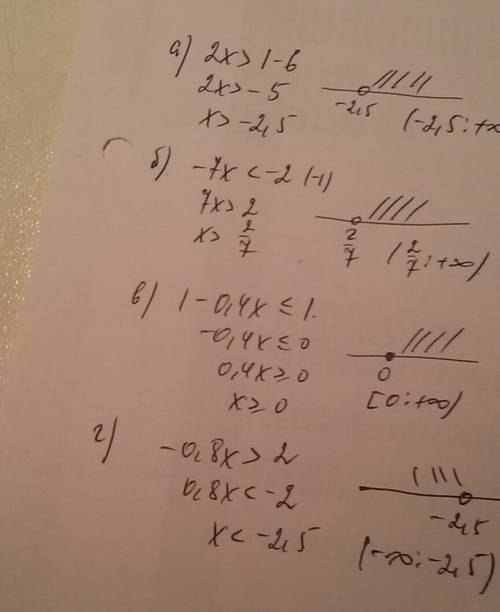 а) 2x > 1-6
2x > -5
x > -2,5
-2,5
(-2,5; +∞
б) -7x < -2 (-1)
7x > 2
x > 2/7
2/7
(2/7; +∞)
в) 1-0,4x ≤ 1.
-0,4x ≤ 0
0,4x ≥ 0
x ≥ 0
0
[0; +∞)
г) -0,8x > 2
0,8x < -2
x < -2,5
-2,5
(-∞; -2,5)